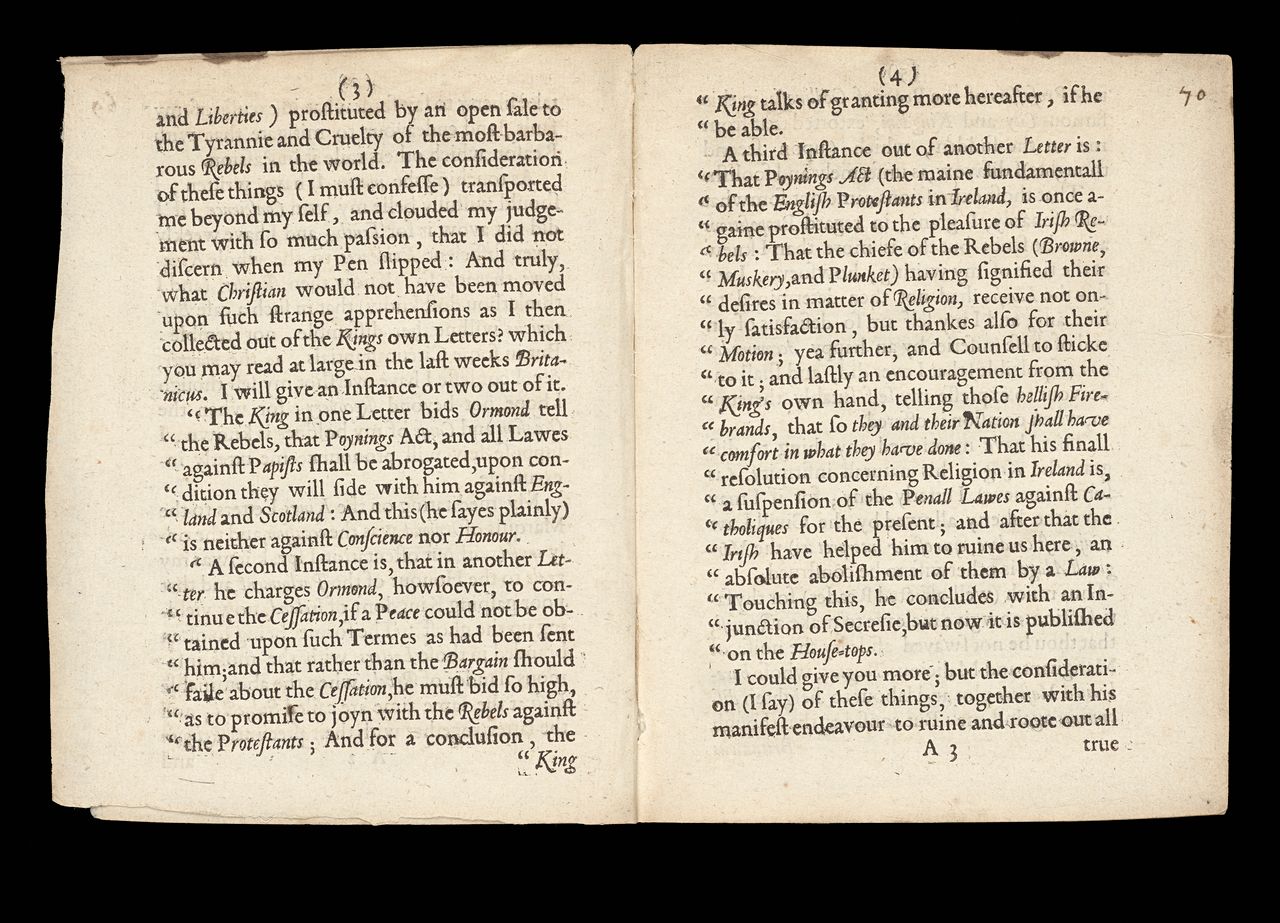 (3)
and Liberties ) proſtituted by an open ſale to
the Tyrannie and Cruelty of the moſt barba-
rous Rebels in the world. The conſideration
of theſe things ( I muſt confeſſe ) tranſported
me beyond my ſelf , and clouded my judge-
ment with ſo much paſsion , that I did not
diſcern when my Pen ſlipped : And truly,
what Chriſtian would not have been moved
upon ſuch ſtrange apprehenſions as I then
collected out of the Kings own Letters? which
you may read at large in the laſt weeks Brita-
nicus. I will give an Inſtance or two out of it.
“ The King in one Letter bids Ormond tell
“ the Rebels, that Poynings Act, and all Lawes
“ againſt Papiſts ſhall be abrogated,upon con-
“ dition they will ſide with him againſt Eng-
“ land and Scotland : And this (he ſayes plainly)
“ is neither againſt Conſcience nor Honour.
“ A ſecond Inſtance is, that in another Let-
“ ter he charges Ormond, howſoever, to con-
“ tinu e the Ceſſation,if a Peace could not be ob-
“ tained upon ſuch Termes as had been ſent
“ him;and that rather than the Bargain ſhould
“ faile about the Ceſſation,he muſt bid ſo high,
“ as to promiſe to joyn with the Rebels againſt
“ the Proteſtants ; And for a conclusion , the
“ King
(4)
70
“ King talks of granting more hereafter , if he
“ be able.
A third Inſtance out of another Letter is :
“ That Poynings Act (the maine fundamentall
“ of the Engliſh Proteſtants in Ireland, is once a-
“ gaine proſtituted to the pleaſure of Iriſh Re-
“ bels : That the chiefe of the Rebels (Browne,
“ Muskery,and Plunket) having ſignified their
“ deſires in matter of Religion, receive not on-
“ ly ſatisfaction , but thankes alſo for their
“ Motion ; yea further, and Counſell to ſticke
“ to it ; and laſtly an encouragement from the
“ King's own hand, telling thoſe helliſh Fire-
“ brands, that ſo they and their Nation ſhall have
“ comfort in what they have done : That his finall
“ reſolution concerning Religion in Ireland is,
“ a ſuſpenſion of the Penall Lawes againſt Ca-
“ tholiques for the preſent ; and after that the
“ Iriſh have helped him to ruine us here , an
“ abſolute aboliſhment of them by a Law :
“ Touching this, he concludes with an In-
“ junction of Secreſie,but now it is publiſhed
“ on the Houſe-tops.
I could give you more ; but the conſiderati-
on (I ſay) of theſe things, together with his
manifeſt endeavour to ruine and roote out all
A 3 true